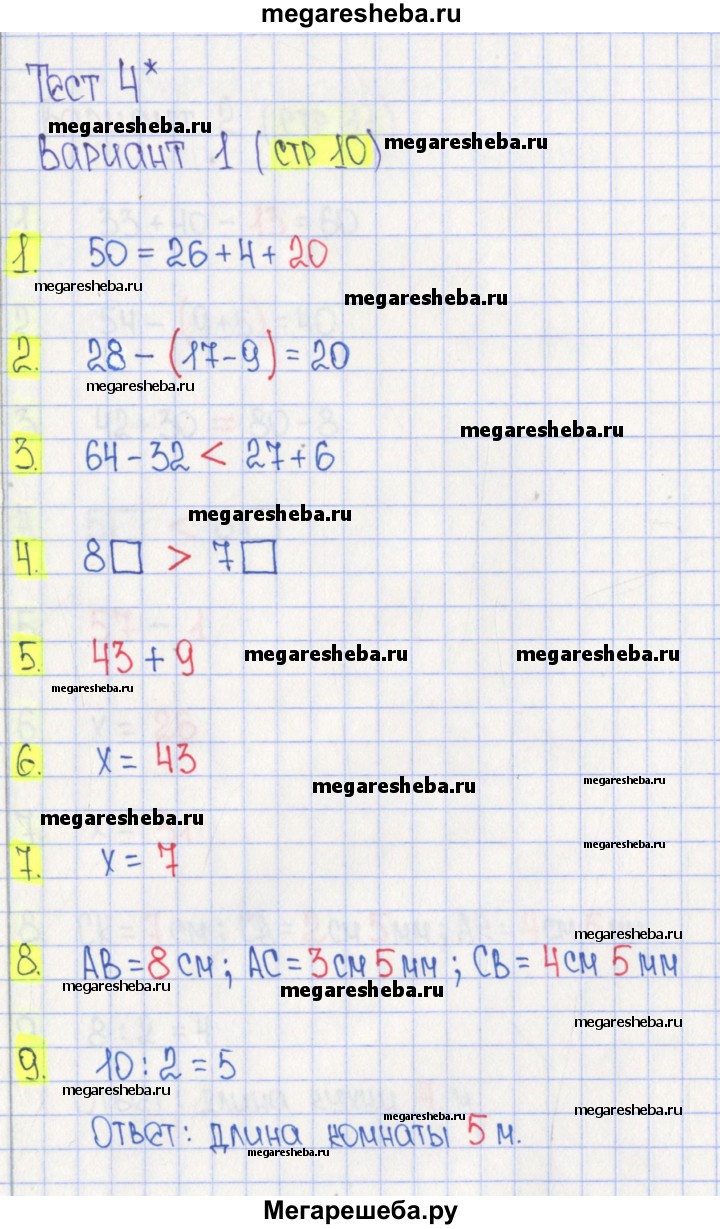 megaresheba.ru
Тест 4*
megaresheba.ru
Вариант 1 (стр 10) megaresheba.ru
1. 50 = 26 + 4 + 20
megaresheba.ru
megaresheba.ru
2. 28 - (17 - 9) = 20
megaresheba.ru
megaresheba.ru
3. 64 - 32 < 27 + 6
megaresheba.ru
4. 8□ > 7□
5. 43 + 9 megaresheba.ru megaresheba.ru
megaresheba.ru
6. x = 43
megaresheba.ru megaresheba.ru
megaresheba.ru
megaresheba.ru
7. x = 7
megaresheba.ru
8. AB = 8 см; AC = 3 см 5 мм; CB = 4 см 5 мм
megaresheba.ru megaresheba.ru
megaresheba.ru
9. 10 : 2 = 5
megaresheba.ru
megaresheba.ru
megaresheba.ru
Ответ: длина комнаты 5 м.
megaresheba.ru
Мегарешеба.ру